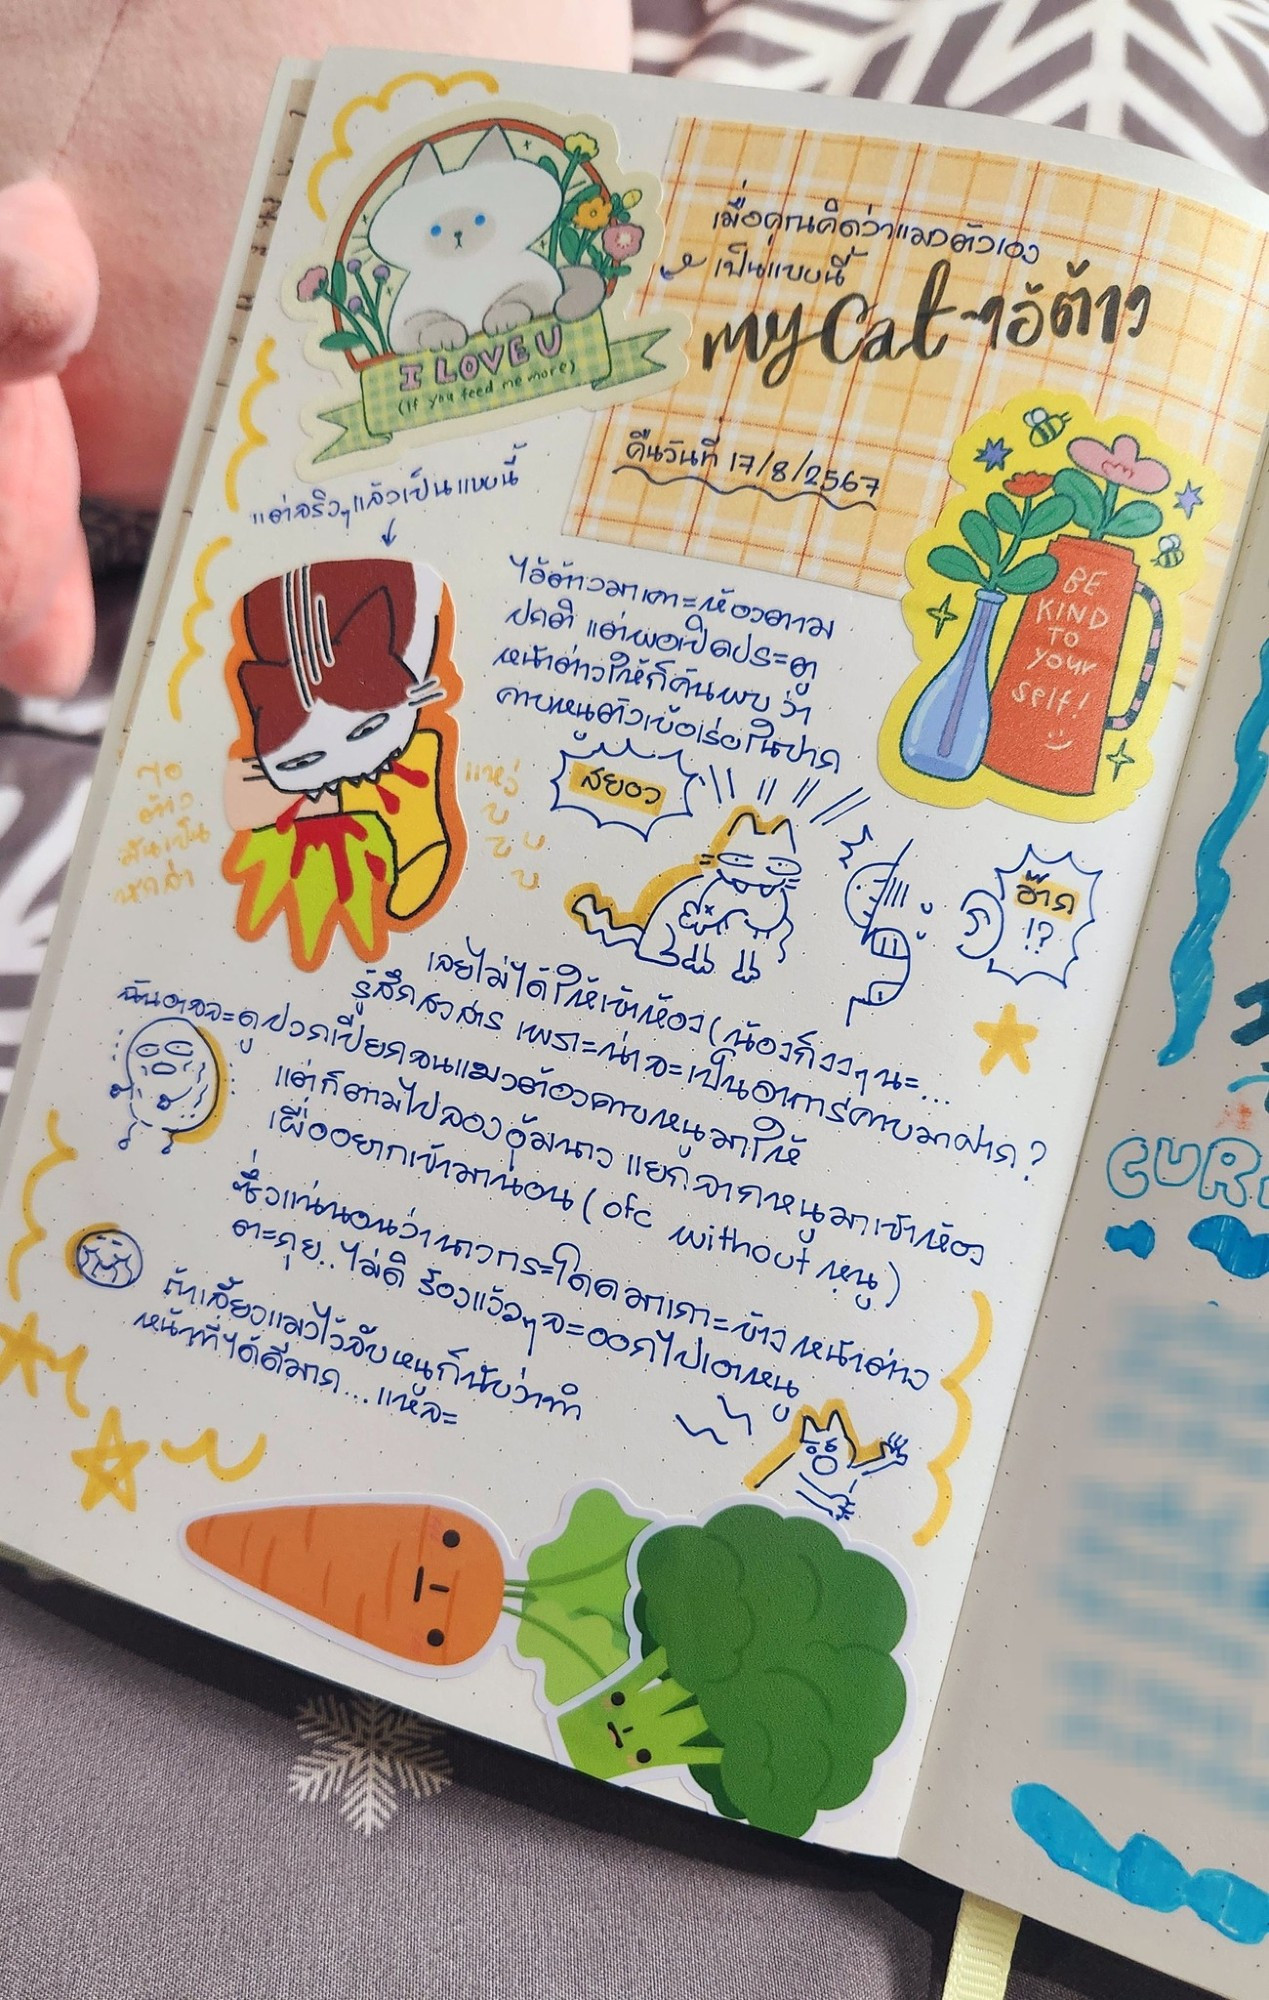 เมื่อคุณคิดว่าแมวตัวเอง
เป็นแบบนี้
my cat ~ไอ้ต้าว
I LOVE U
(If you feed me more)
คืนวันที่ 17/8/2567
แต่จริงๆแล้วเป็นแบบนี้
BE
KIND
TO
your
self!
ไอ้ต้าวมาเคาะห้องตาม
ปกติ แต่พอเปิดประตู
หน้าต่างให้ก็ค้นพบว่า
คาบหนูตัวเบ้อเร่อในปาก
ไอ
ต้าว
มันเป็น
แหง่
บ
บ
บ
บ
สยอง
อ๊าก
!?
เลยไม่ได้ให้เข้าห้อง (น้องก็งงๆนะ...
รู้สึกสงสาร เพราะน่าจะเป็นอาการคาบมาฝาก?
ฉันอาจจะดูปวกเปียกจนแมวต้องคาบหนูมาให้
แต่ก็ตามไปลองอุ้มนาง แยกจากหนูมาเข้าห้อง
เผื่ออยากเข้ามานอน (ofc without หนู)
ซึ่งแน่นอนว่านางกระโดดมาเกาะข้างหน้าต่าง
ตะกุย..ไม่ดิ ร้องแง้วๆจะออกไปเอาหนู
ถ้าเลี้ยงแมวไว้จับหนูก็นับว่าทำ
หน้าที่ได้ดีมาก...แหละ
CUR